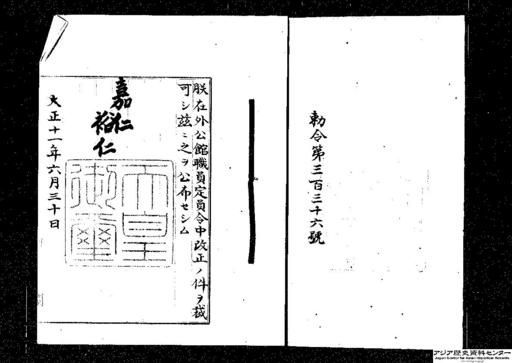 勅令第三百三十六號
朕在外公館職員定員令中改正ノ件ヲ裁
可シ茲ニ之ヲ公布セシム
嘉仁
裕仁
天皇
御璽
大正十一年六月三十日
アジア歴史資料センター
Japan Center for Asian Historical Records